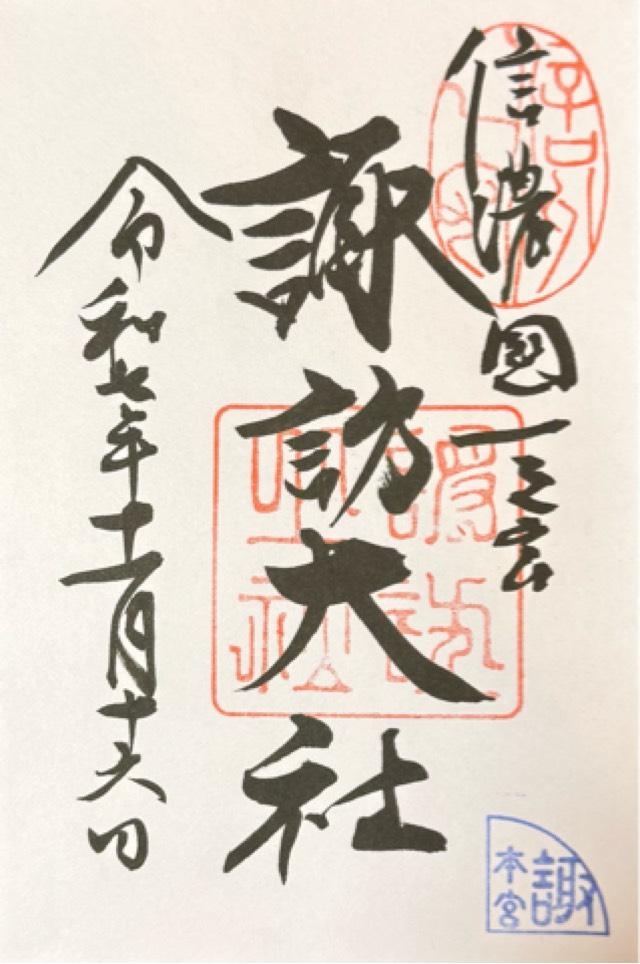 信濃國一之宮
諏訪大社
令和七年十一月十六日
諏
本宮